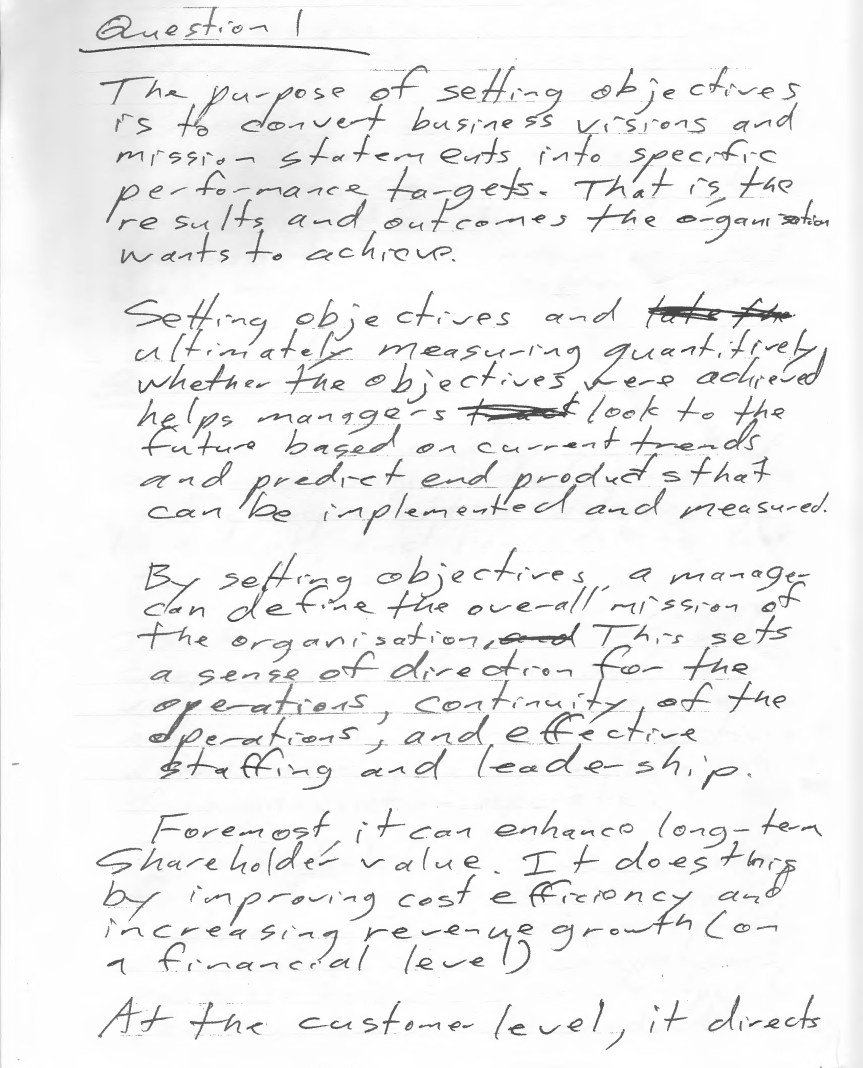 Question 1
The purpose of setting objectives
is to convert business visions and
mission statements into specific
performance targets. That is, the
results and outcomes the organisation
wants to achieve.
Setting objectives and
ultimately measuring quantitively,
whether the objectives were achieved
helps managers look to the
future based on current trends
and predict end products that
can be implemented and measured.
By setting objectives, a manager
can define the overall mission of
the organisation, This sets
a sense of direction for the
operations, continuity of the
operations, and effective
staffing and leadership.
Foremost, it can enhance long-term
Shareholder value. It does this
by improving cost efficiency and
increasing revenue growth (on
a financial level)
At the customer level, it directs